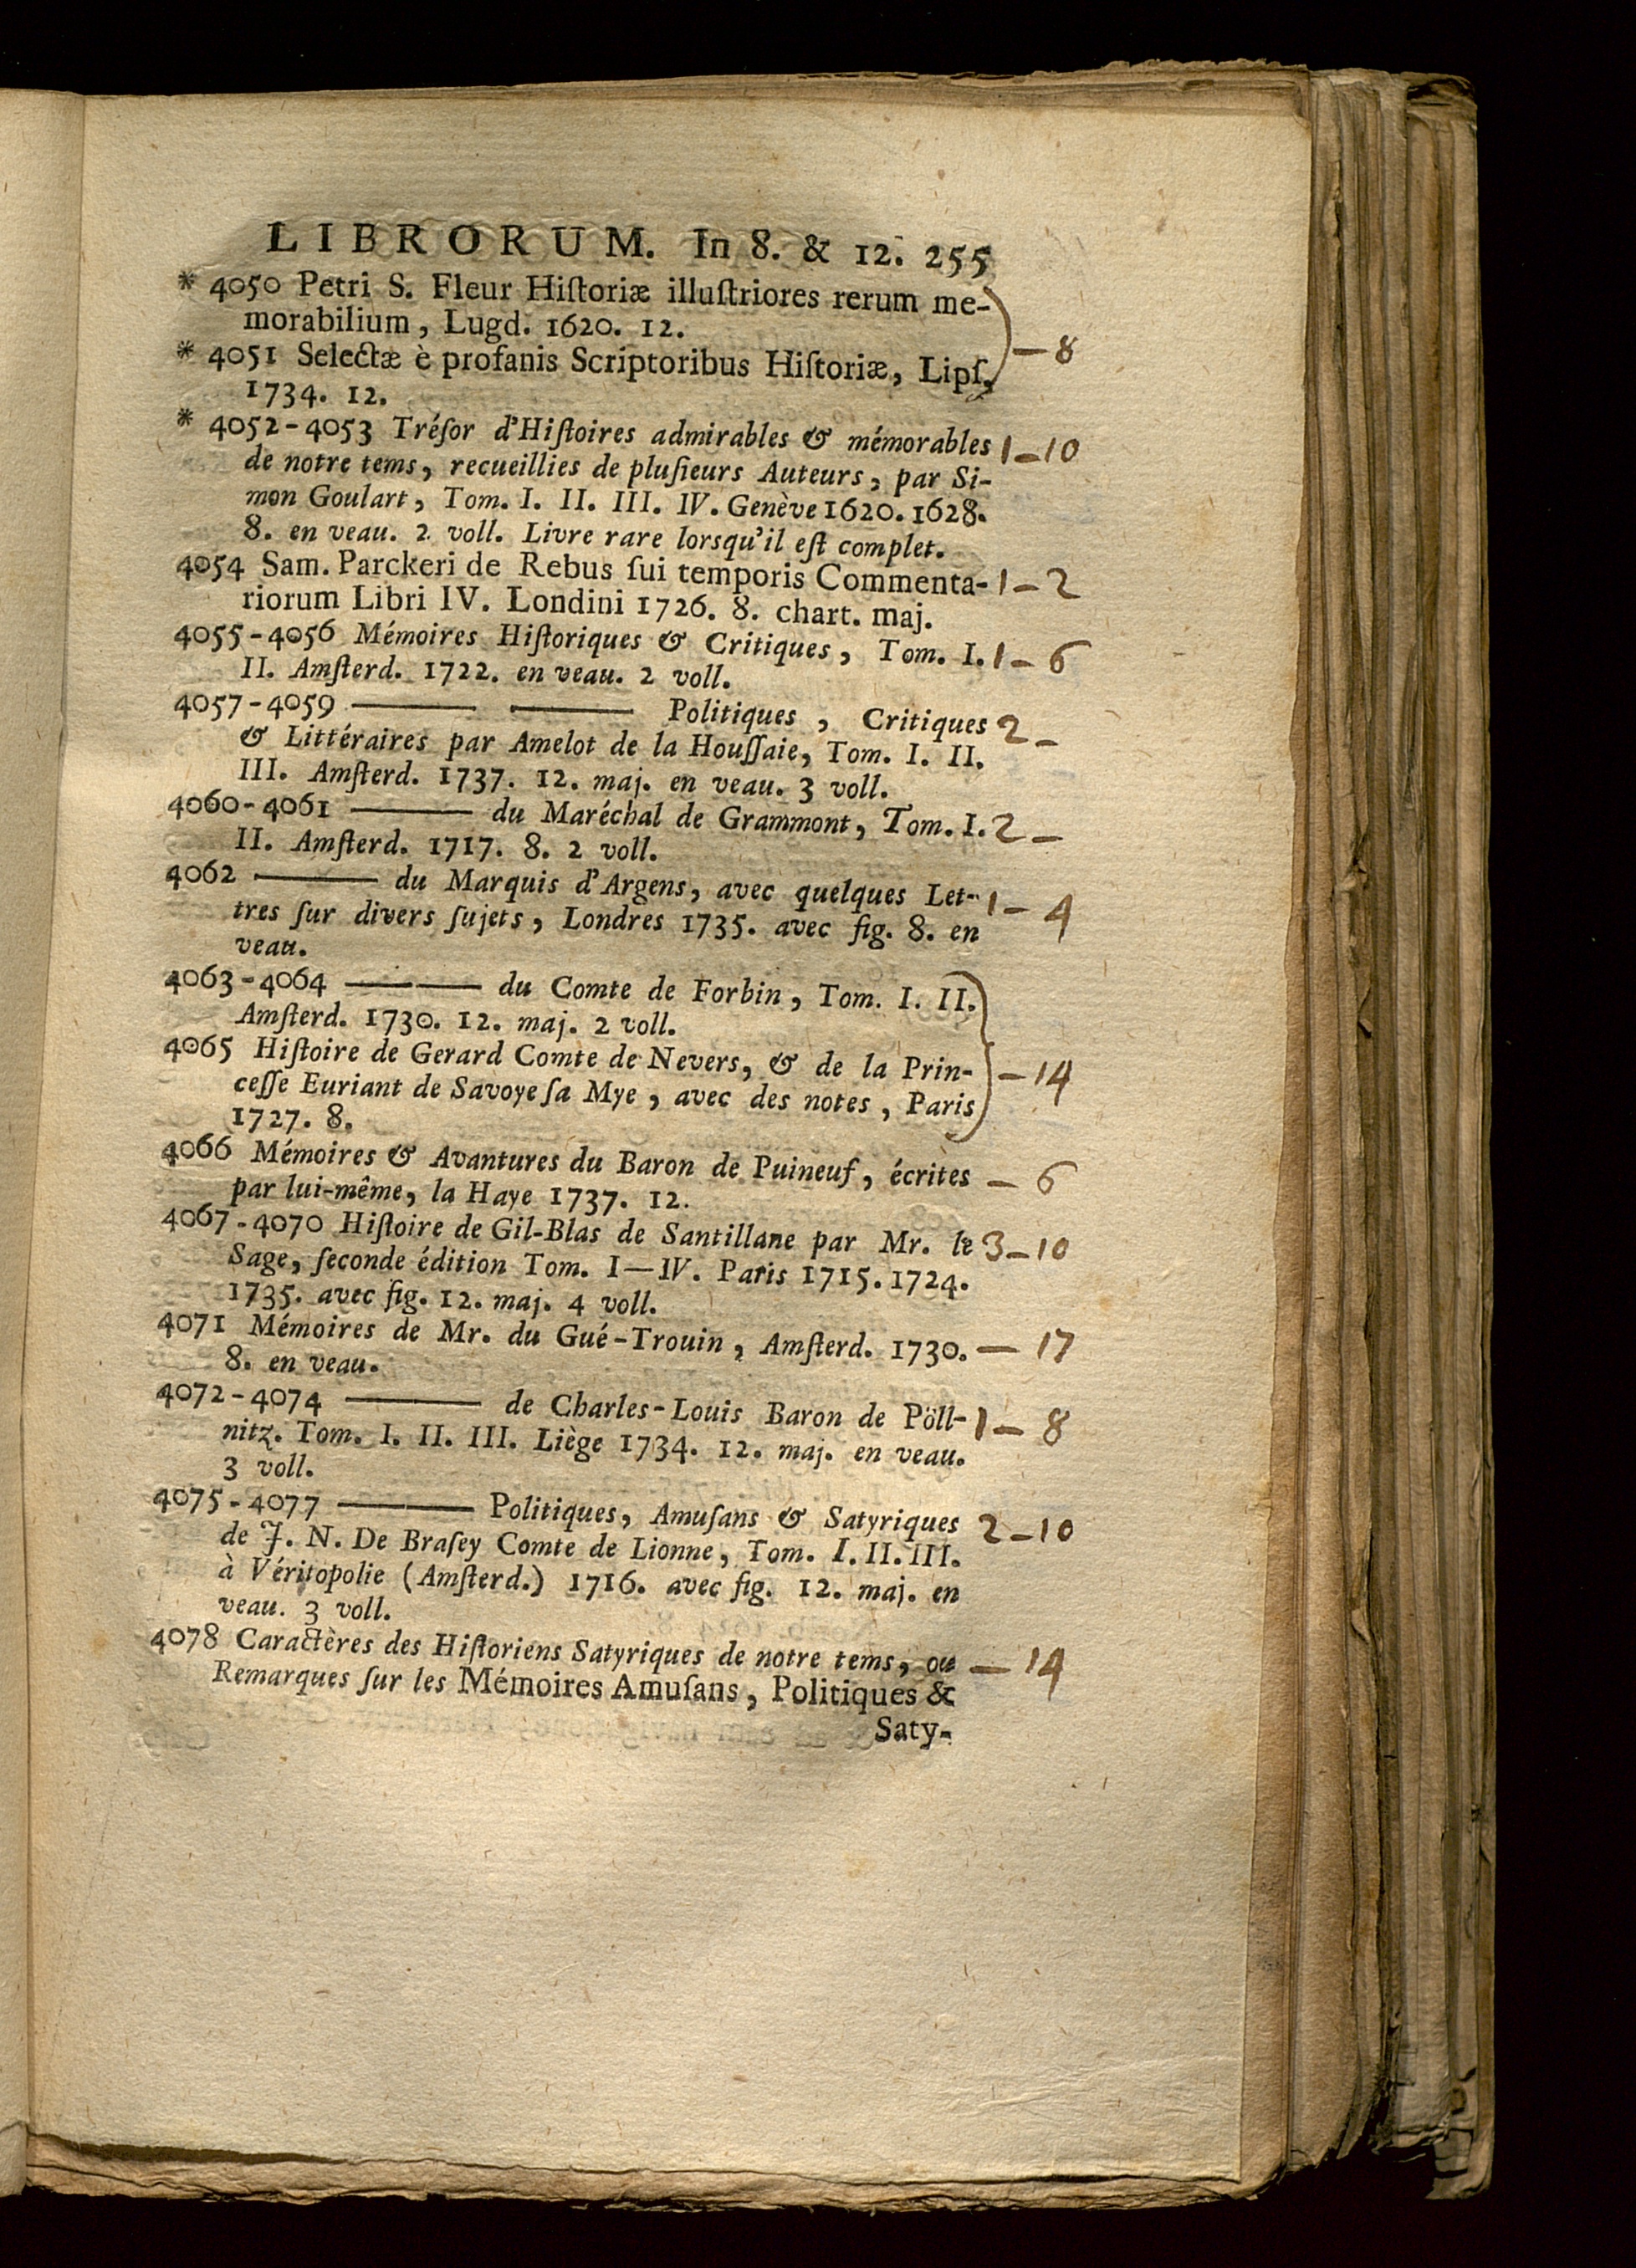 LIBRORUM. In 8. & 12. 255
* 4050 Petri S. Fleur Hiſtoriæ illuſtriores rerum me-
morabilium, Lugd. 1620. 12.
* 4051 Selectæ è profanis Scriptoribus Hiſtoriæ, Lipſ, — 8
1734. 12.
* 4052-4053 Tréſor d'Hiſtoires admirables & mémorables 1 — 10
de notre tems, recueillies de pluſieurs Auteurs, par Si-
mon Goulart, Tom. I. II. III. IV. Genève 1620. 1628.
8. en veau. 2 voll. Livre rare lorsqu'il eſt complet.
4054 Sam. Parckeri de Rebus ſui temporis Commenta- 1 — 2
riorum Libri IV. Londini 1726. 8. chart. maj.
4055-4056 Mémoires Hiſtoriques & Critiques, Tom. I. 1 — 6
II. Amſterd. 1722. en veau. 2 voll.
4057-4059 ——— ——— Politiques, Critiques 2 —
& Littéraires par Amelot de la Houſſaie, Tom. I. II.
III. Amſterd. 1737. 12. maj. en veau. 3 voll.
4060-4061 ——— du Maréchal de Grammont, Tom. I. 2 —
II. Amſterd. 1717. 8. 2 voll.
4062 ——— du Marquis d'Argens, avec quelques Let- 1 — 4
tres ſur divers ſujets, Londres 1735. avec fig. 8. en
veau.
4063-4064 ——— du Comte de Forbin, Tom. I. II.
Amſterd. 1730. 12. maj. 2 voll.
4065 Hiſtoire de Gerard Comte de Nevers, & de la Prin- — 14
ceſſe Euriant de Savoye ſa Mye, avec des notes, Paris
1727. 8.
4066 Mémoires & Avantures du Baron de Puineuf, écrites — 6
par lui-même, la Haye 1737. 12.
4067-4070 Hiſtoire de Gil-Blas de Santillane par Mr. le 3 — 10
Sage, ſeconde édition Tom. I—IV. Paris 1715. 1724.
1735. avec fig. 12. maj. 4 voll.
4071 Mémoires de Mr. du Gué-Trouin, Amſterd. 1730. — 17
8. en veau.
4072-4074 ——— de Charles-Louis Baron de Pöll- 1 — 8
nitz. Tom. I. II. III. Liège 1734. 12. maj. en veau.
3 voll.
4075-4077 ——— Politiques, Amuſans & Satyriques 2 — 10
de J. N. De Braſey Comte de Lionne, Tom. I. II. III.
à Véritopolie (Amſterd.) 1716. avec fig. 12. maj. en
veau. 3 voll.
4078 Caractères des Hiſtoriens Satyriques de notre tems, ou — 14
Remarques ſur les Mémoires Amuſans, Politiques &
Saty-